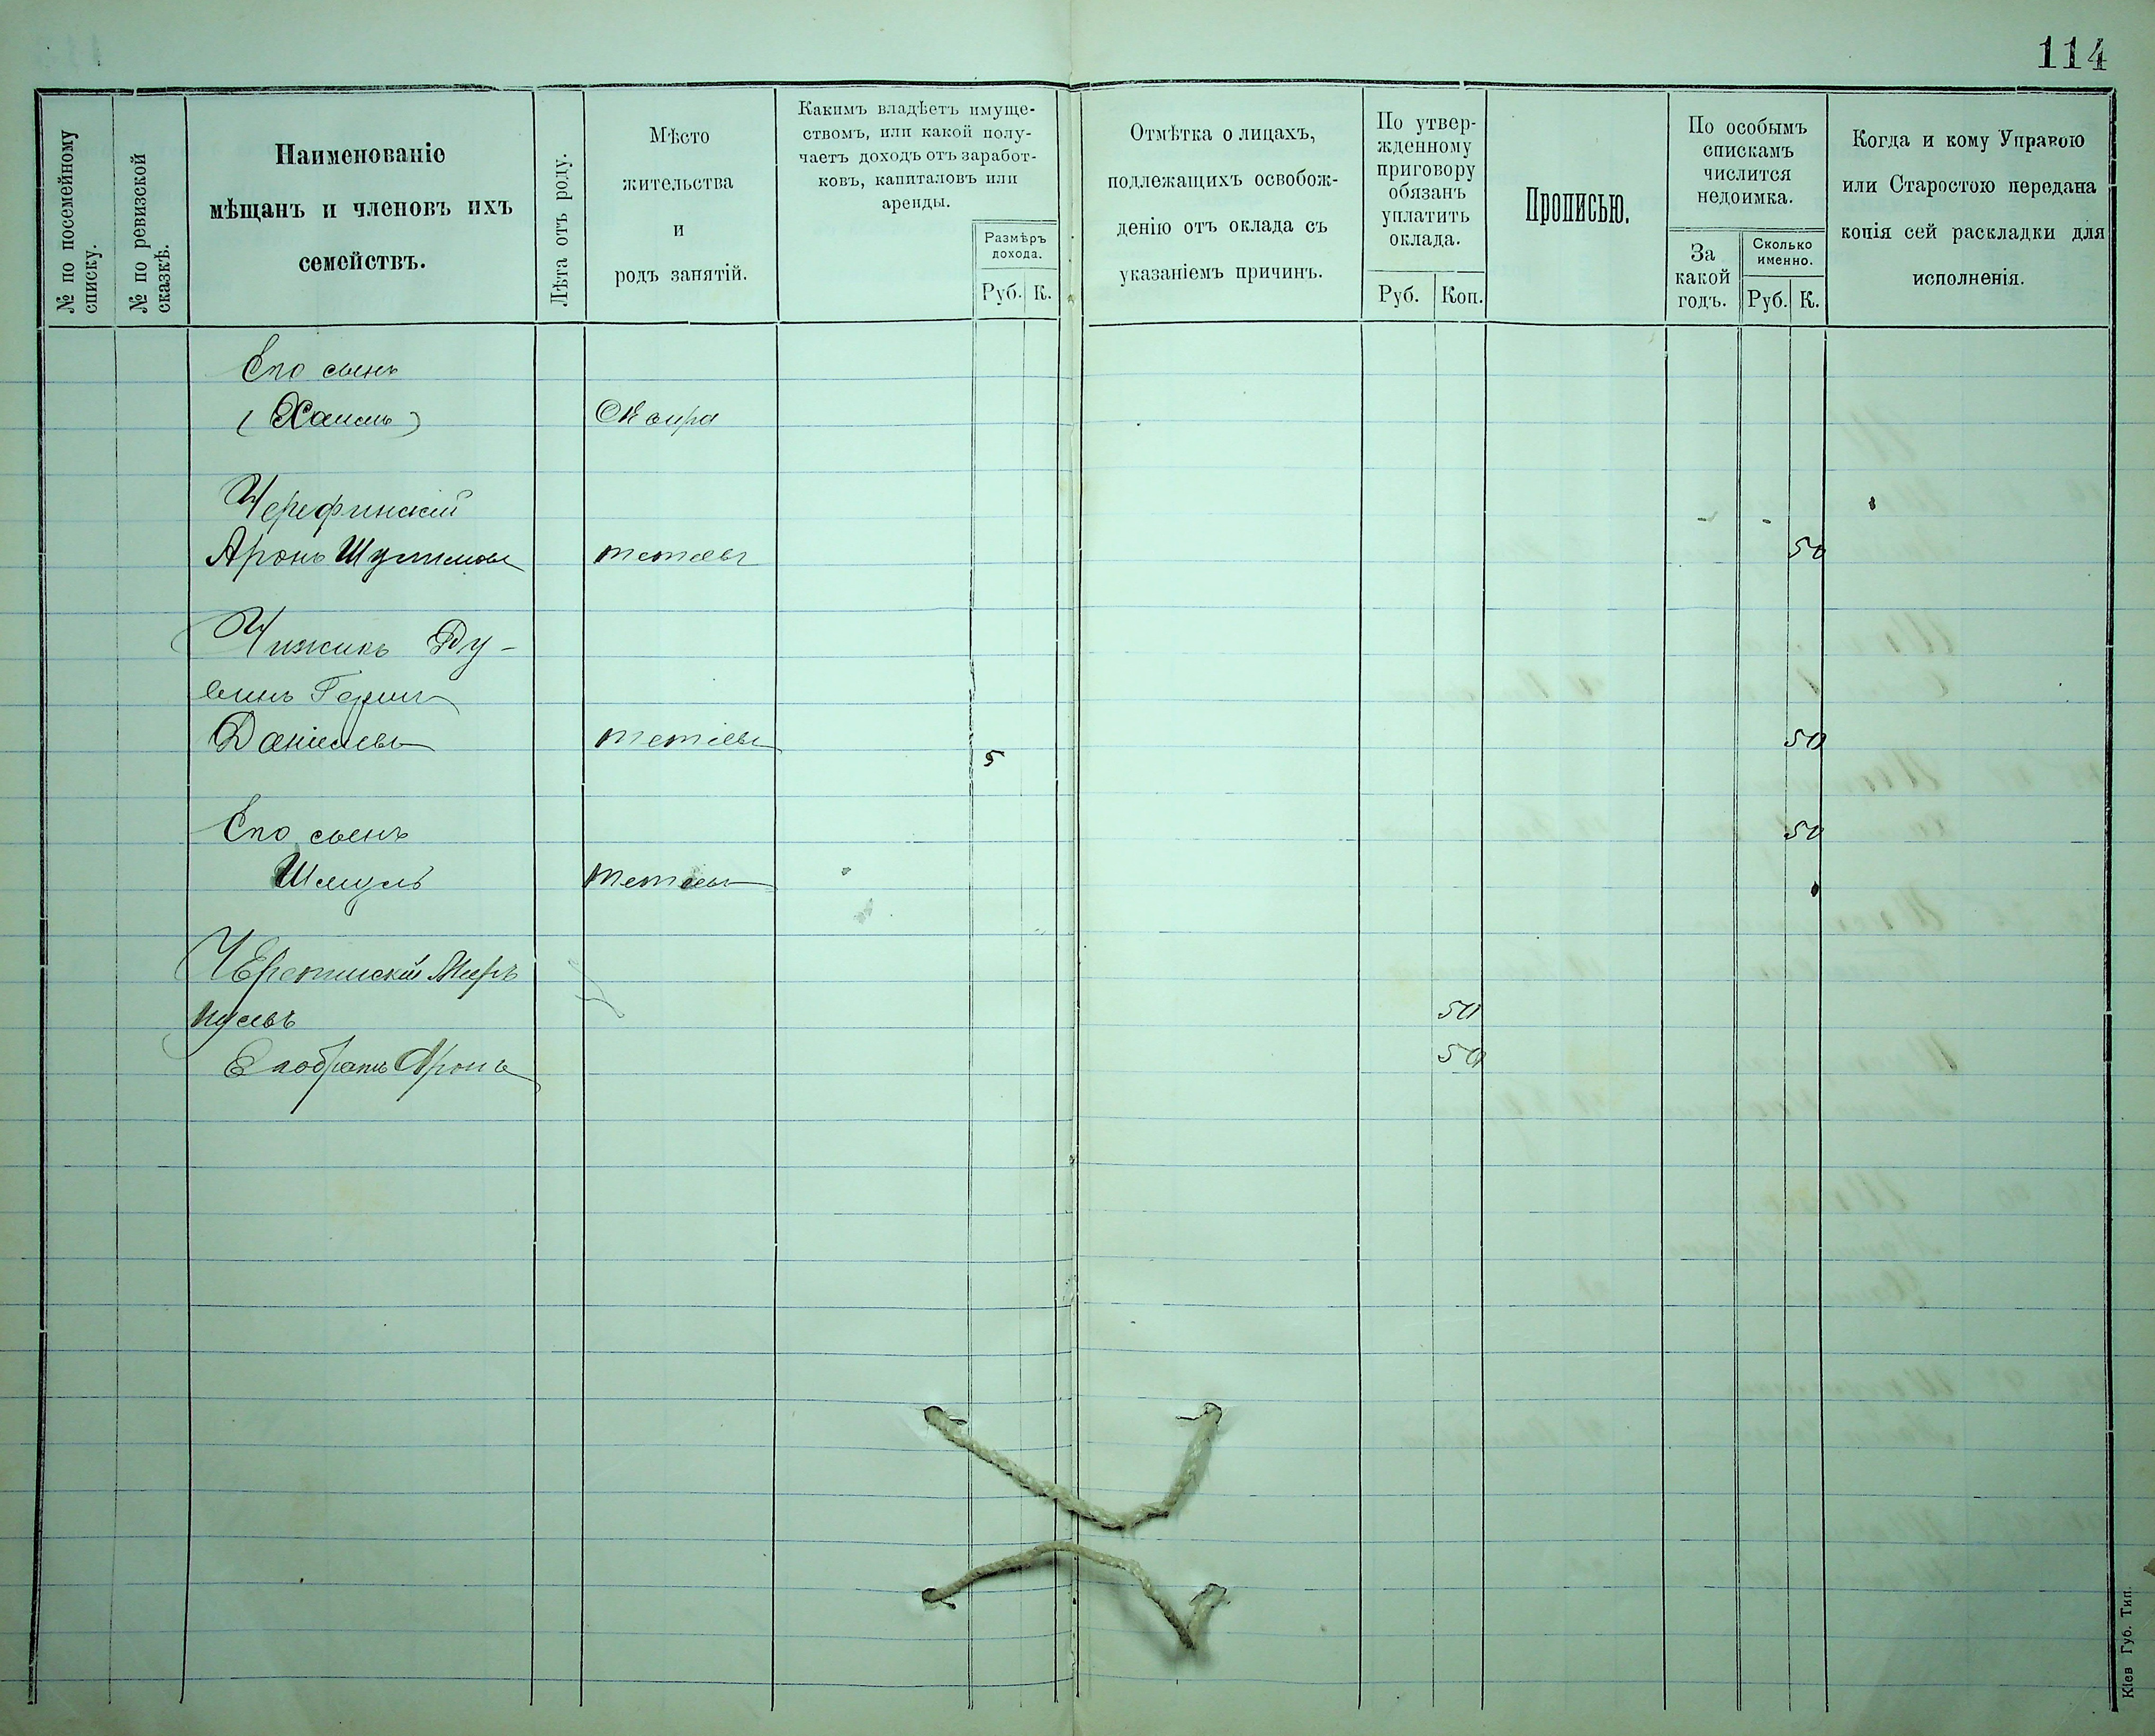 114
№ по посемейному
списку.
№ по ревизской
сказкѣ.
Наименованіе
мѣщанъ и членовъ ихъ
семействъ.
Лѣта отъ роду.
Мѣсто
жительства
и
родъ занятій.
Какимъ владѣетъ имуще-
ствомъ, или какой полу-
чаетъ доходъ отъ заработ-
ковъ, капиталовъ или
аренды.
Размѣръ
дохода.
Руб. К.
Отмѣтка о лицахъ,
подлежащихъ освобож-
денію отъ оклада съ
указаніемъ причинъ.
По утвер-
жденному
приговору
обязанъ
уплатить
оклада.
Руб. Коп.
Прописью.
По особымъ
спискамъ
числится
недоимка.
За
какой
годъ.
Сколько
именно.
Руб. К.
Когда и кому Управою
или Старостою передана
копія сей раскладки для
исполненія.
Его сынъ
(Хаимъ) Сквира
Аронъ тетіевъ 50
Чижикъ Ду-
Даніилевъ тетіевъ 5 50
Его сынъ 50
Шмуль тетіевъ
50
Его братъ Аронъ 50
Кіев Губ. Тип.